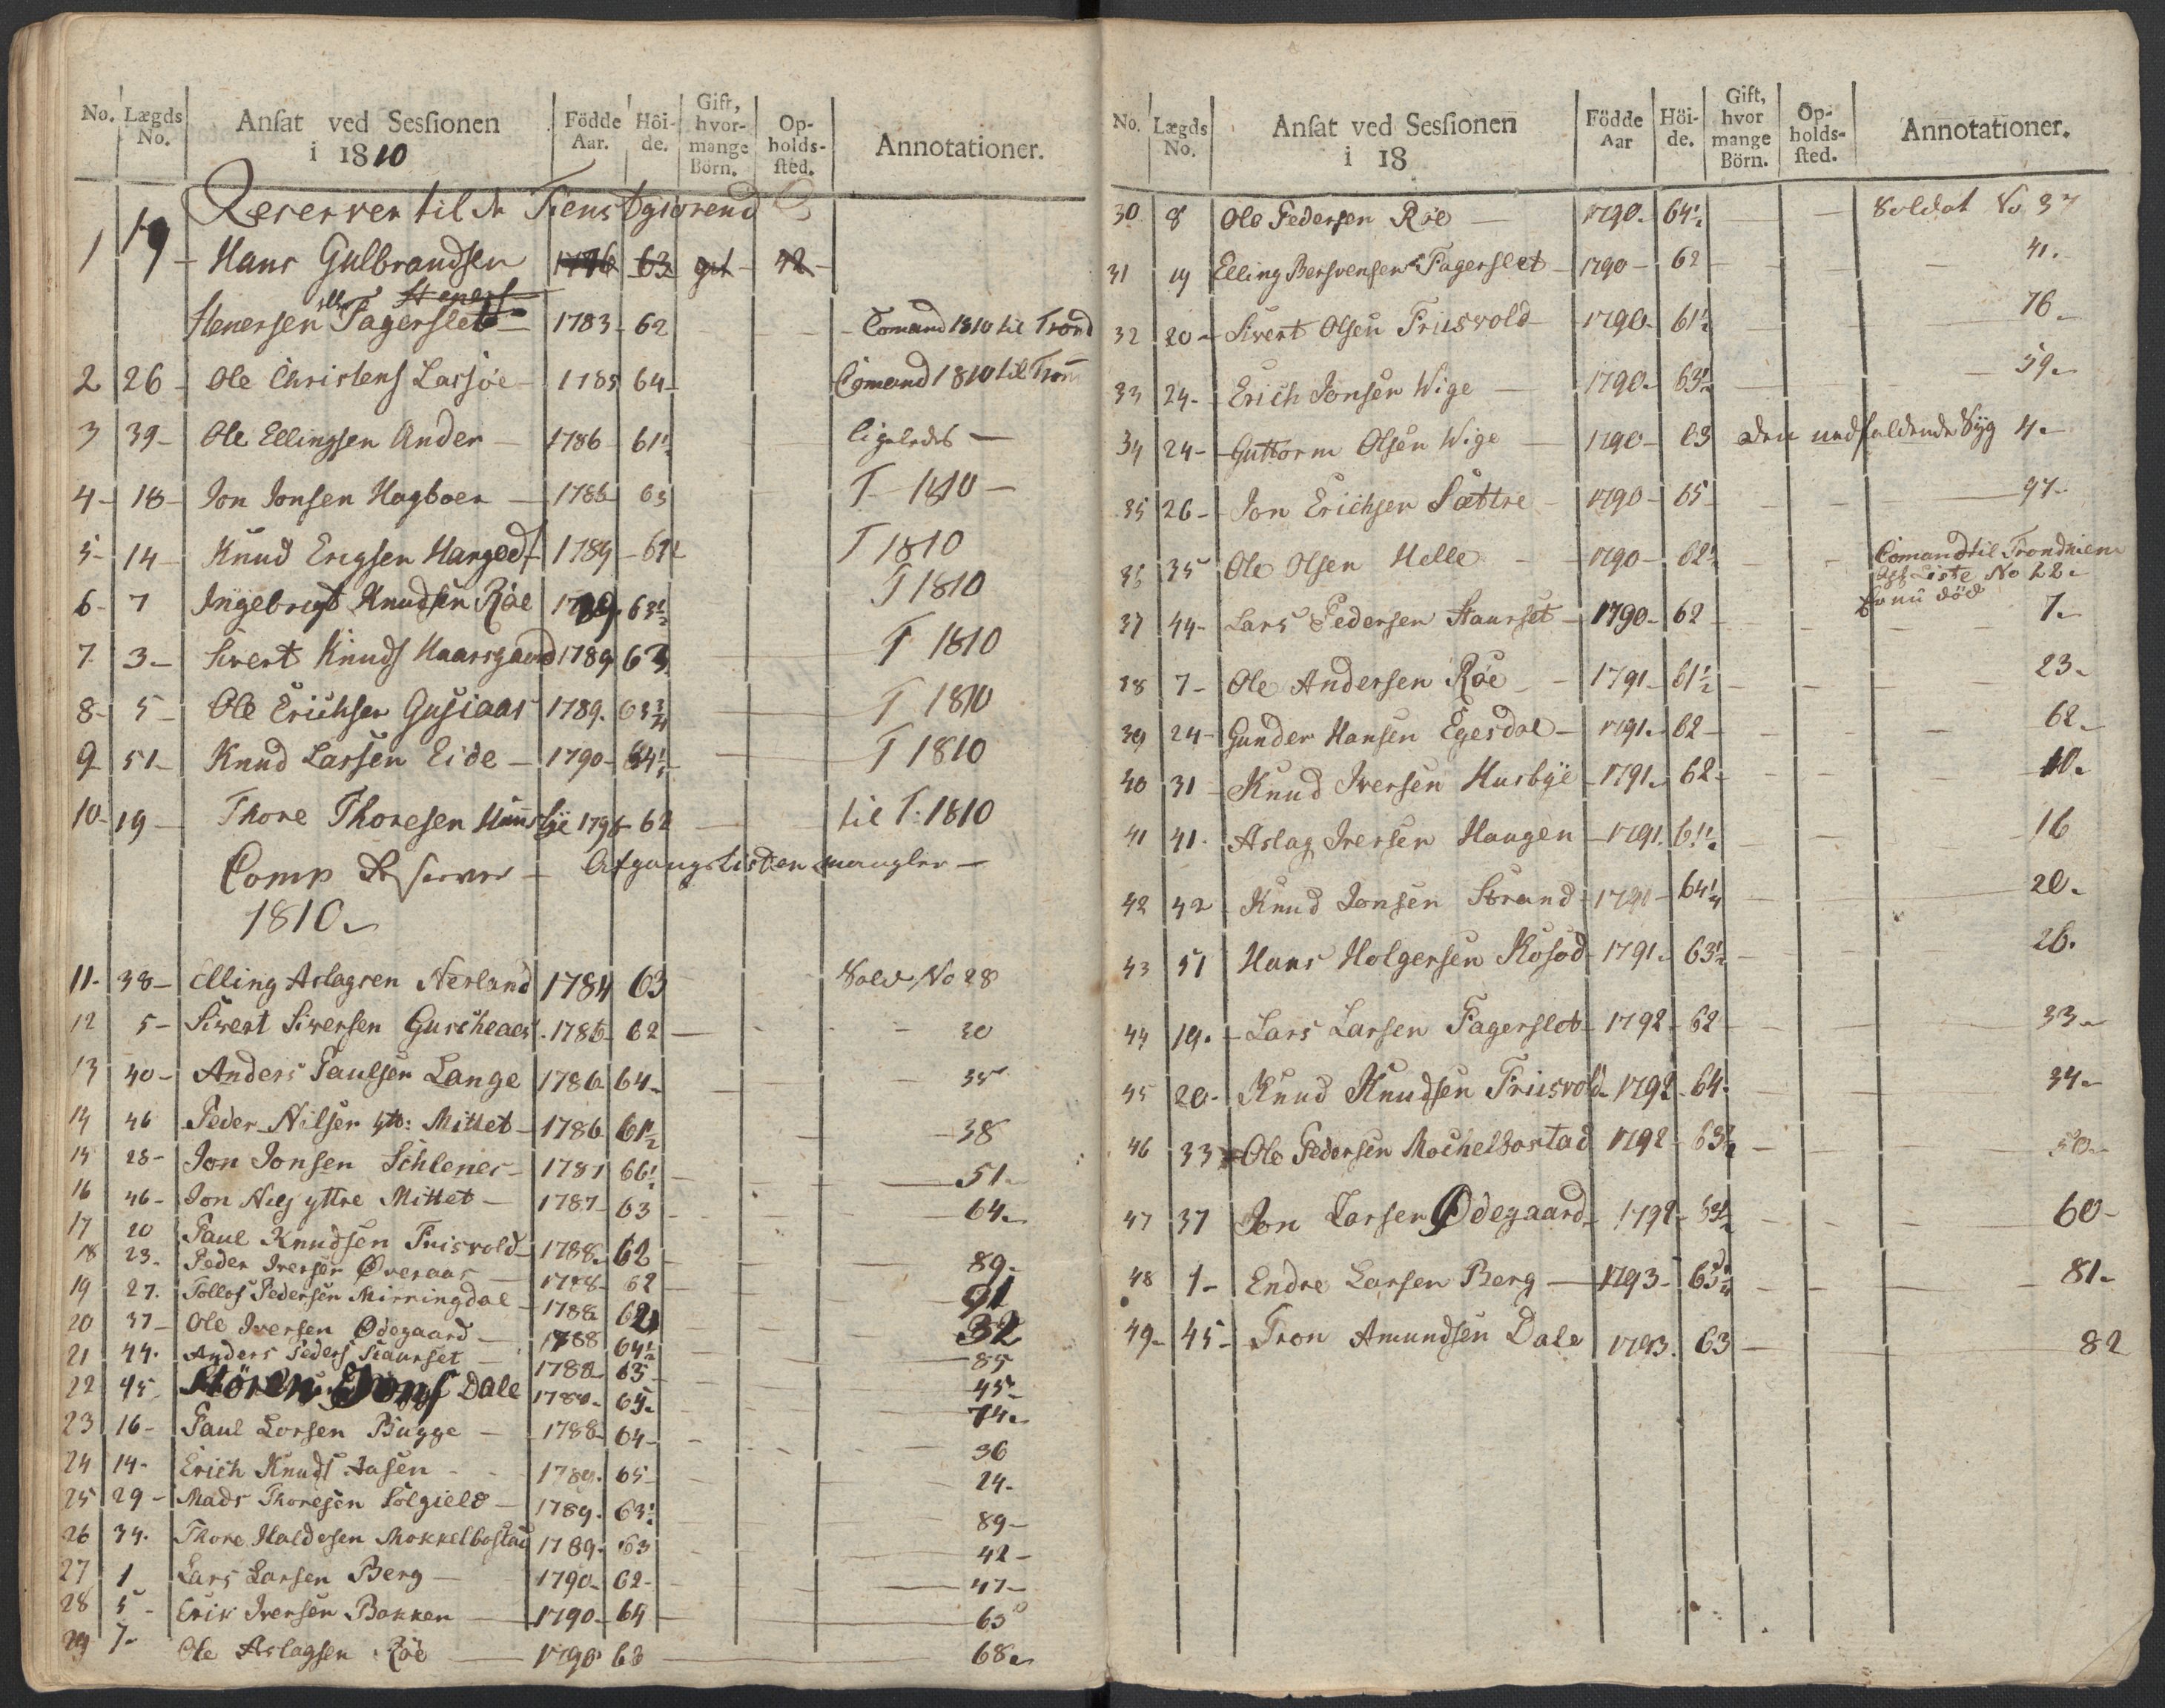 No. Lægds No. Ansat ved Sessionen i 1810 Födde Aar. Höi-de. Gift, hvor-mange Börn. Op-holds-sted. Annotationer.
Reserver til Tienstgiørend
1 19 - Hans Gulbrandsen 1786 63 git - 42 -
Stenersen Fagerslet 1783 - 62 - Comand 1810 til Trond
2 26 - Ole Christens Lasjøe - 1785 64 - Comand 1810 til Trom
3 39 - Ole Ellingsen Ander - 1786 61½ ligeledes -
4 - 18 - Jon Jonsen Hagboen - 1786 63 T - 1810 -
5 - 14 - Knud Erigsen 1789 - T 1810
6 - 7 Ingebrigt Knudsen Röe 1789. 63½ T 1810
7. 3 - Sivert Knuds Haarsgaard 1789 63 T 1810
8 - 5 - Ole Erichsen Gusiaas 1789. 63¾ T 1810
9 51 - Knud Larsen Eide - 1790 - 64½ T 1810
10 - 19 - Thore Thoresen 62 til T. 1810
Comp Reserver - Afgangslisten mangler -
1810 -
11 - 38 - Elling Aslagsen Nerland 1784 63 Sold No 28
12 5 - Sivert Siversen Guscheaas 1785 - 62 - 20
13 40 - Anders Paulsen Lange 1786 64 - 35
14 46 Peder Nilsen ytt: Mittet - 1786 61½ - 38
15 28 - Jon Jonsen Schlenes - 1787 66½ - 51 -
16 46 - Jon Niels yttre Mittet - 1787 - 63 - 64 -
17 20 Paul Knudsen Frisvold - 1788. 62 - 89 -
18 23 - Peder Iversen Øveraas - 1788 - 62 91
19 27. Tollof Pedersen Mirringdal - 1788 62½ 32
20 37 - Ole Iversen Ødegaard - 1788 64½ - 85
21 44. Anders Peders Staurset - 1788 - 65 - 45 -
22 45 - Sören Jons Dale 1788 - 65 - 74 -
23 16 - Paul Larsen Bugge - 1788 - 64 - 36
24 14 - Erich Knuds Aasen - 1789. 65 - 24 -
25 29 - Mads Thoresen Solgield - 1789. 63½ 89 -
26 34. Thore Haldosen Mokkelbostad 1789 - 63 42 -
27 1 Lars Larsen Berg - 1790 - 62 - 47 -
28 5 - Erik Iversen Bakken - 1790 - 64 - 65
29 7 - Ole Aslagsen Röe - 1790 63 - 68 -
No. Lægds No. Ansat ved Sessionen i 18 Födde Aar Höi-de. Gift, hvor mange Börn. Op-holds-sted. Annotationer.
30 8 Ole Pedersen Röe - 1790. 64½ - Soldat No 37
31 19 Elling Bersvensen Fagerslet - 1790 - 62 - 41.
32 20 - Sivert Olsen Friisvold - 1790 - 61½ - 76 -
33 24 - Erich Jonsen Wige - 1790 - 63½ - 59 -
34 24 - Guttorm Olsen Wige - 1790 - 63 den nedfaldende Syg 4 -
35 26 - Jon Erichsen Sættre - 1790 - 65 - 97 -
36 35 Ole Olsen Helle - 1790 - 62½ - Comand til Trondhiem
Liste No 22 -
er nu død
37 44 - Lars Pedersen Staurset - 1790 - 62 - 7 -
38 7 - Ole Andersen Röe - 1791 - 61½ - 23 -
39 24 - Gunder Hansen Egesdal - 1791 - 62 - 62 -
40 31 - Knud Iversen Husbye - 1791 - 62 - 10.
41 41. Aslag Iversen Haugen - 1791. 61½ - 16
42 42 Knud Jonsen Strand - 64¼ - 20 -
43 51 Hans Holgersen Kösod - 1791. 63½ - 26.
44 19. - Lars Larsen Fagerslet - 1792 - 62 - 33 -
45 20 - Knud Knudsen Friisvold - 1792 - 64 - 34 -
46 33 Ole Pedersen Mochelbostad 1792 - 63½ - 50 -
47 37 Jon Larsen Ødegaard - 1792 - 63½ - 60 -
48 1 - Endre Larsen Berg - 1793 - 63¾ - 81 -
49 - 45 - Tron Amundsen Dale 1793. 63 - 82